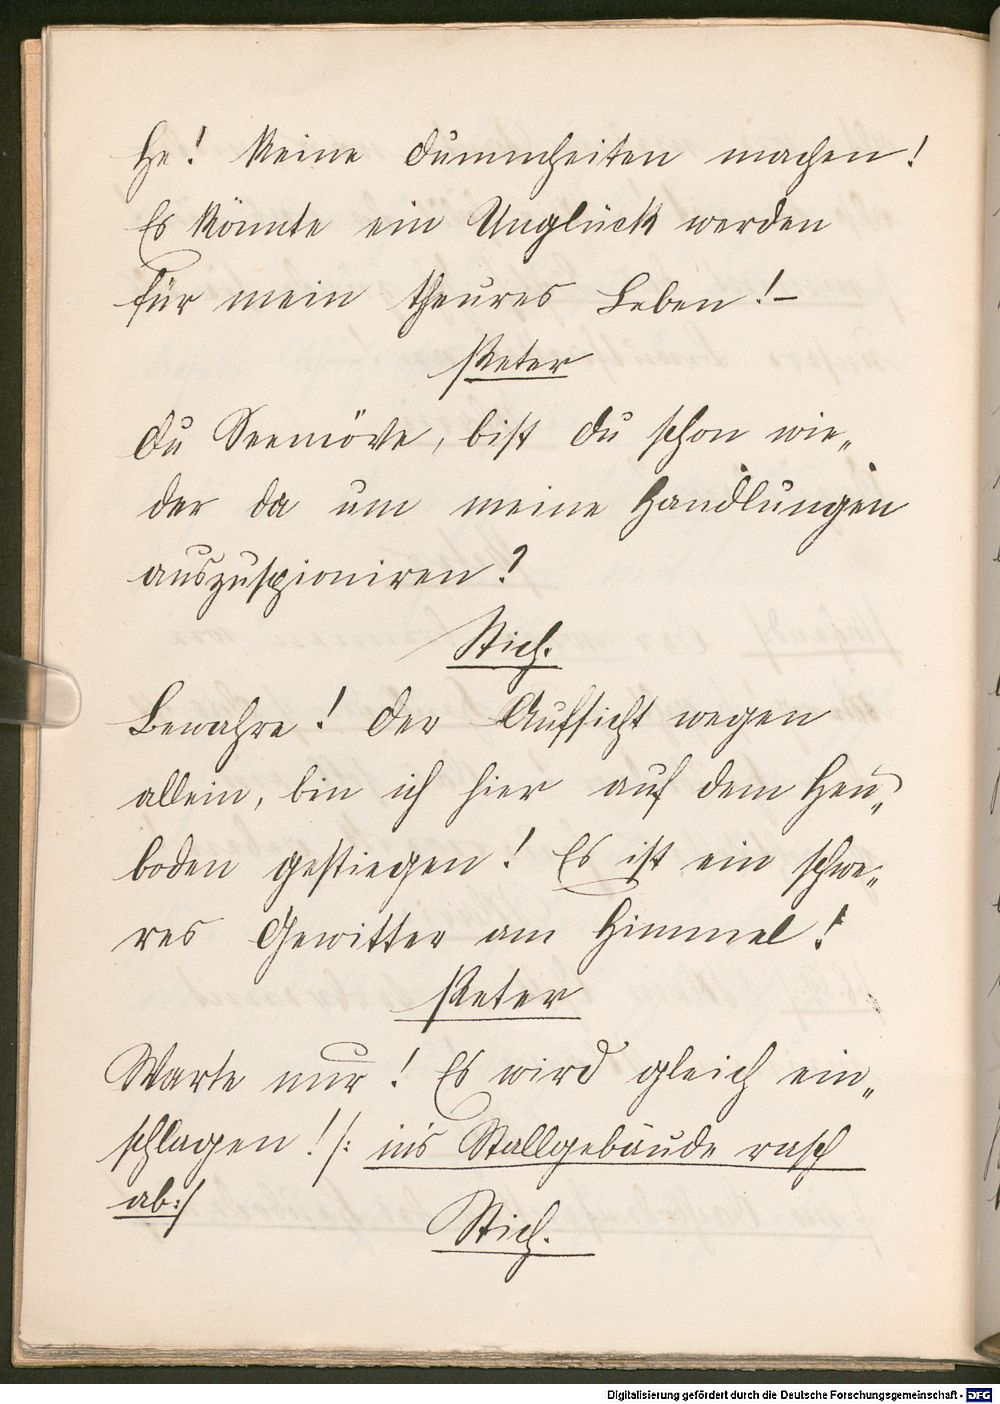 He! Keine Dummheiten machen!
Es könnte ein Unglück werden
für mein theures Leben! –
Peter
Du Seemöve, bist du schon wie„
der da um meine Handlungen
auszuspioniren?
Stich.
Bewahre! Der Aufsicht wegen
allein, bin ich hier auf dem Heu„
boden gestiegen! Es ist ein schwe„
res Gewitter am Himmel!
Peter
Warte nur! Es wird gleich ein„
schlagen! /: in's Stallgebäude rasch
ab:/
Stich.
Digitalisierung gefördert durch die Deutsche Forschungsgemeinschaft - DFG